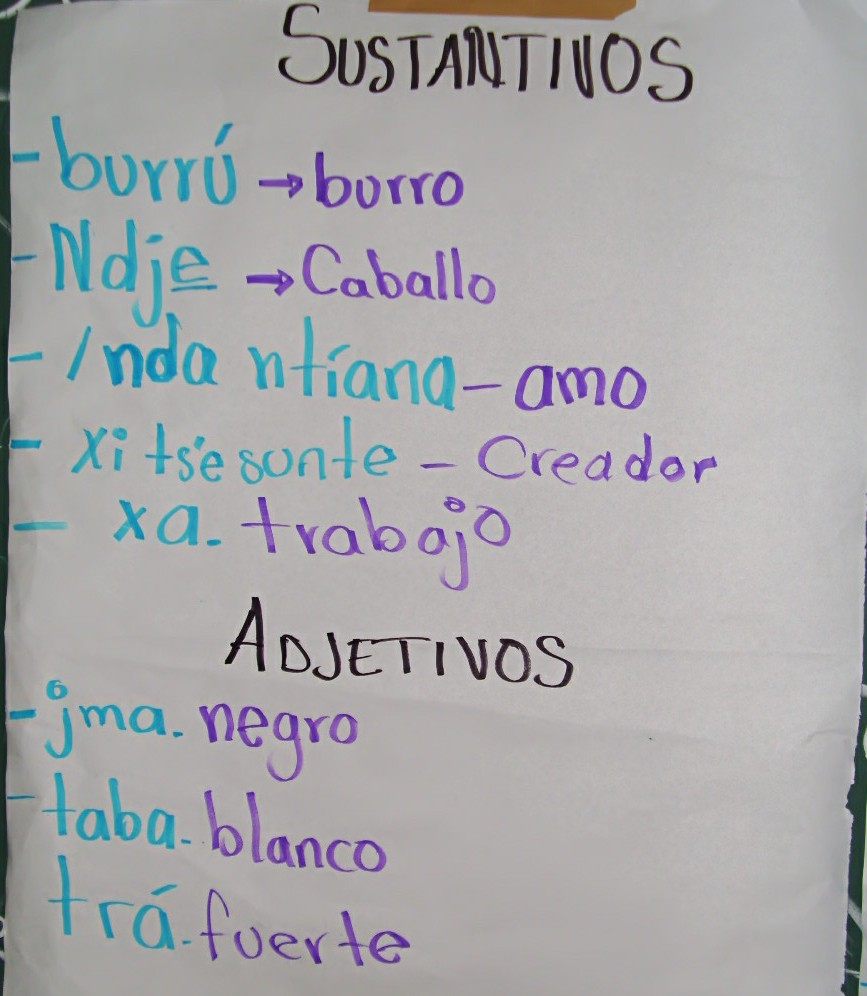 SUSTANTIVOS
- burrú → burro
- Ndje̲ → Caballo
- Inda ntíana - amo
- xi ts'e sunte - Creador
- xa. trabajo
ADJETIVOS
- jma. negro
- taba. blanco
trá. fuerte